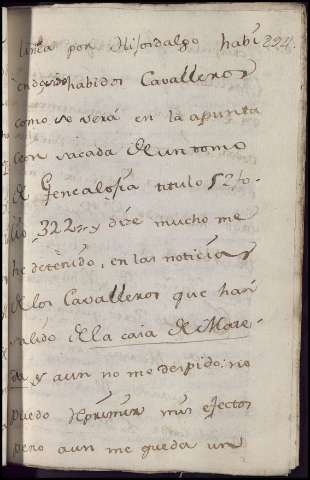 linea por Hijodalgo habi 294.
endo sido habidos Cavalleros
como se verá en la apunta
cion sacada de un tomo
de Genealosia titulo 52 fo-
lio 322 y dize mucho me
he detenido, en las noticias
de los Cavalleros que han
salido de la casa de More-
da y aun no me despido: no
puedo deprimir mis efectos
pero aun me queda un